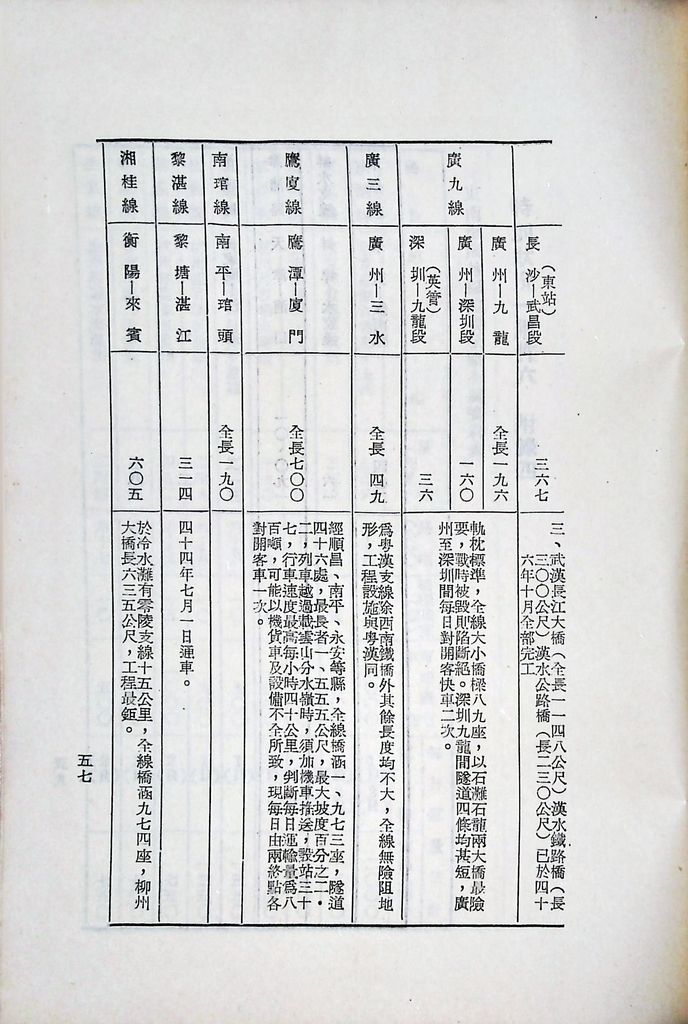 (東站)
長沙—武昌段
三六七
三、武漢長江大橋(全長一一四八公尺)漢水鐵路橋(長
三〇〇公尺)漢水公路橋(長二三〇公尺)已於四十
六年十月全部完工
廣九線
廣州—九龍
全長一九六
廣州—深圳段
一六〇
(英管)
深圳—九龍段
三六
軌枕標準,全線大小橋樑八九座,以石灘石龍兩大橋最險
要,戰時被毀即陷斷絕。深圳九龍間隧道四條均甚短,廣
州至深圳間每日對開客快車二次。
廣三線
廣州—三水
全長 四九
爲粵漢支線除西南鐵橋外其餘長度均不大,全線無險阻地
形,工程設施與粵漢同。
鷹廈線
鷹潭—廈門
全長七〇〇
經順昌、南平、永安等縣,全線橋涵一、九七三座,隧道
四十六處,最長者一、五五五公尺,最大坡度百分之二·
二,列車越過戴雲山分水嶺時,須加機車推送,設站三十
七,行車速度最高每小時四十公里,判斷每日運輸量爲八
百噸,可能以機貨車及設備不全所致,現每日由兩終點各
對開客車一次。
南琯線
南平—琯頭
全長一九〇
黎湛線
黎塘—湛江
三一四
四十四年七月一日通車。
湘桂線
衡陽—來賓
六〇五
於冷水灘有零陵支線十五公里,全線橋涵九七四座,柳州
大橋長六三五公尺,工程最鉅。
五七